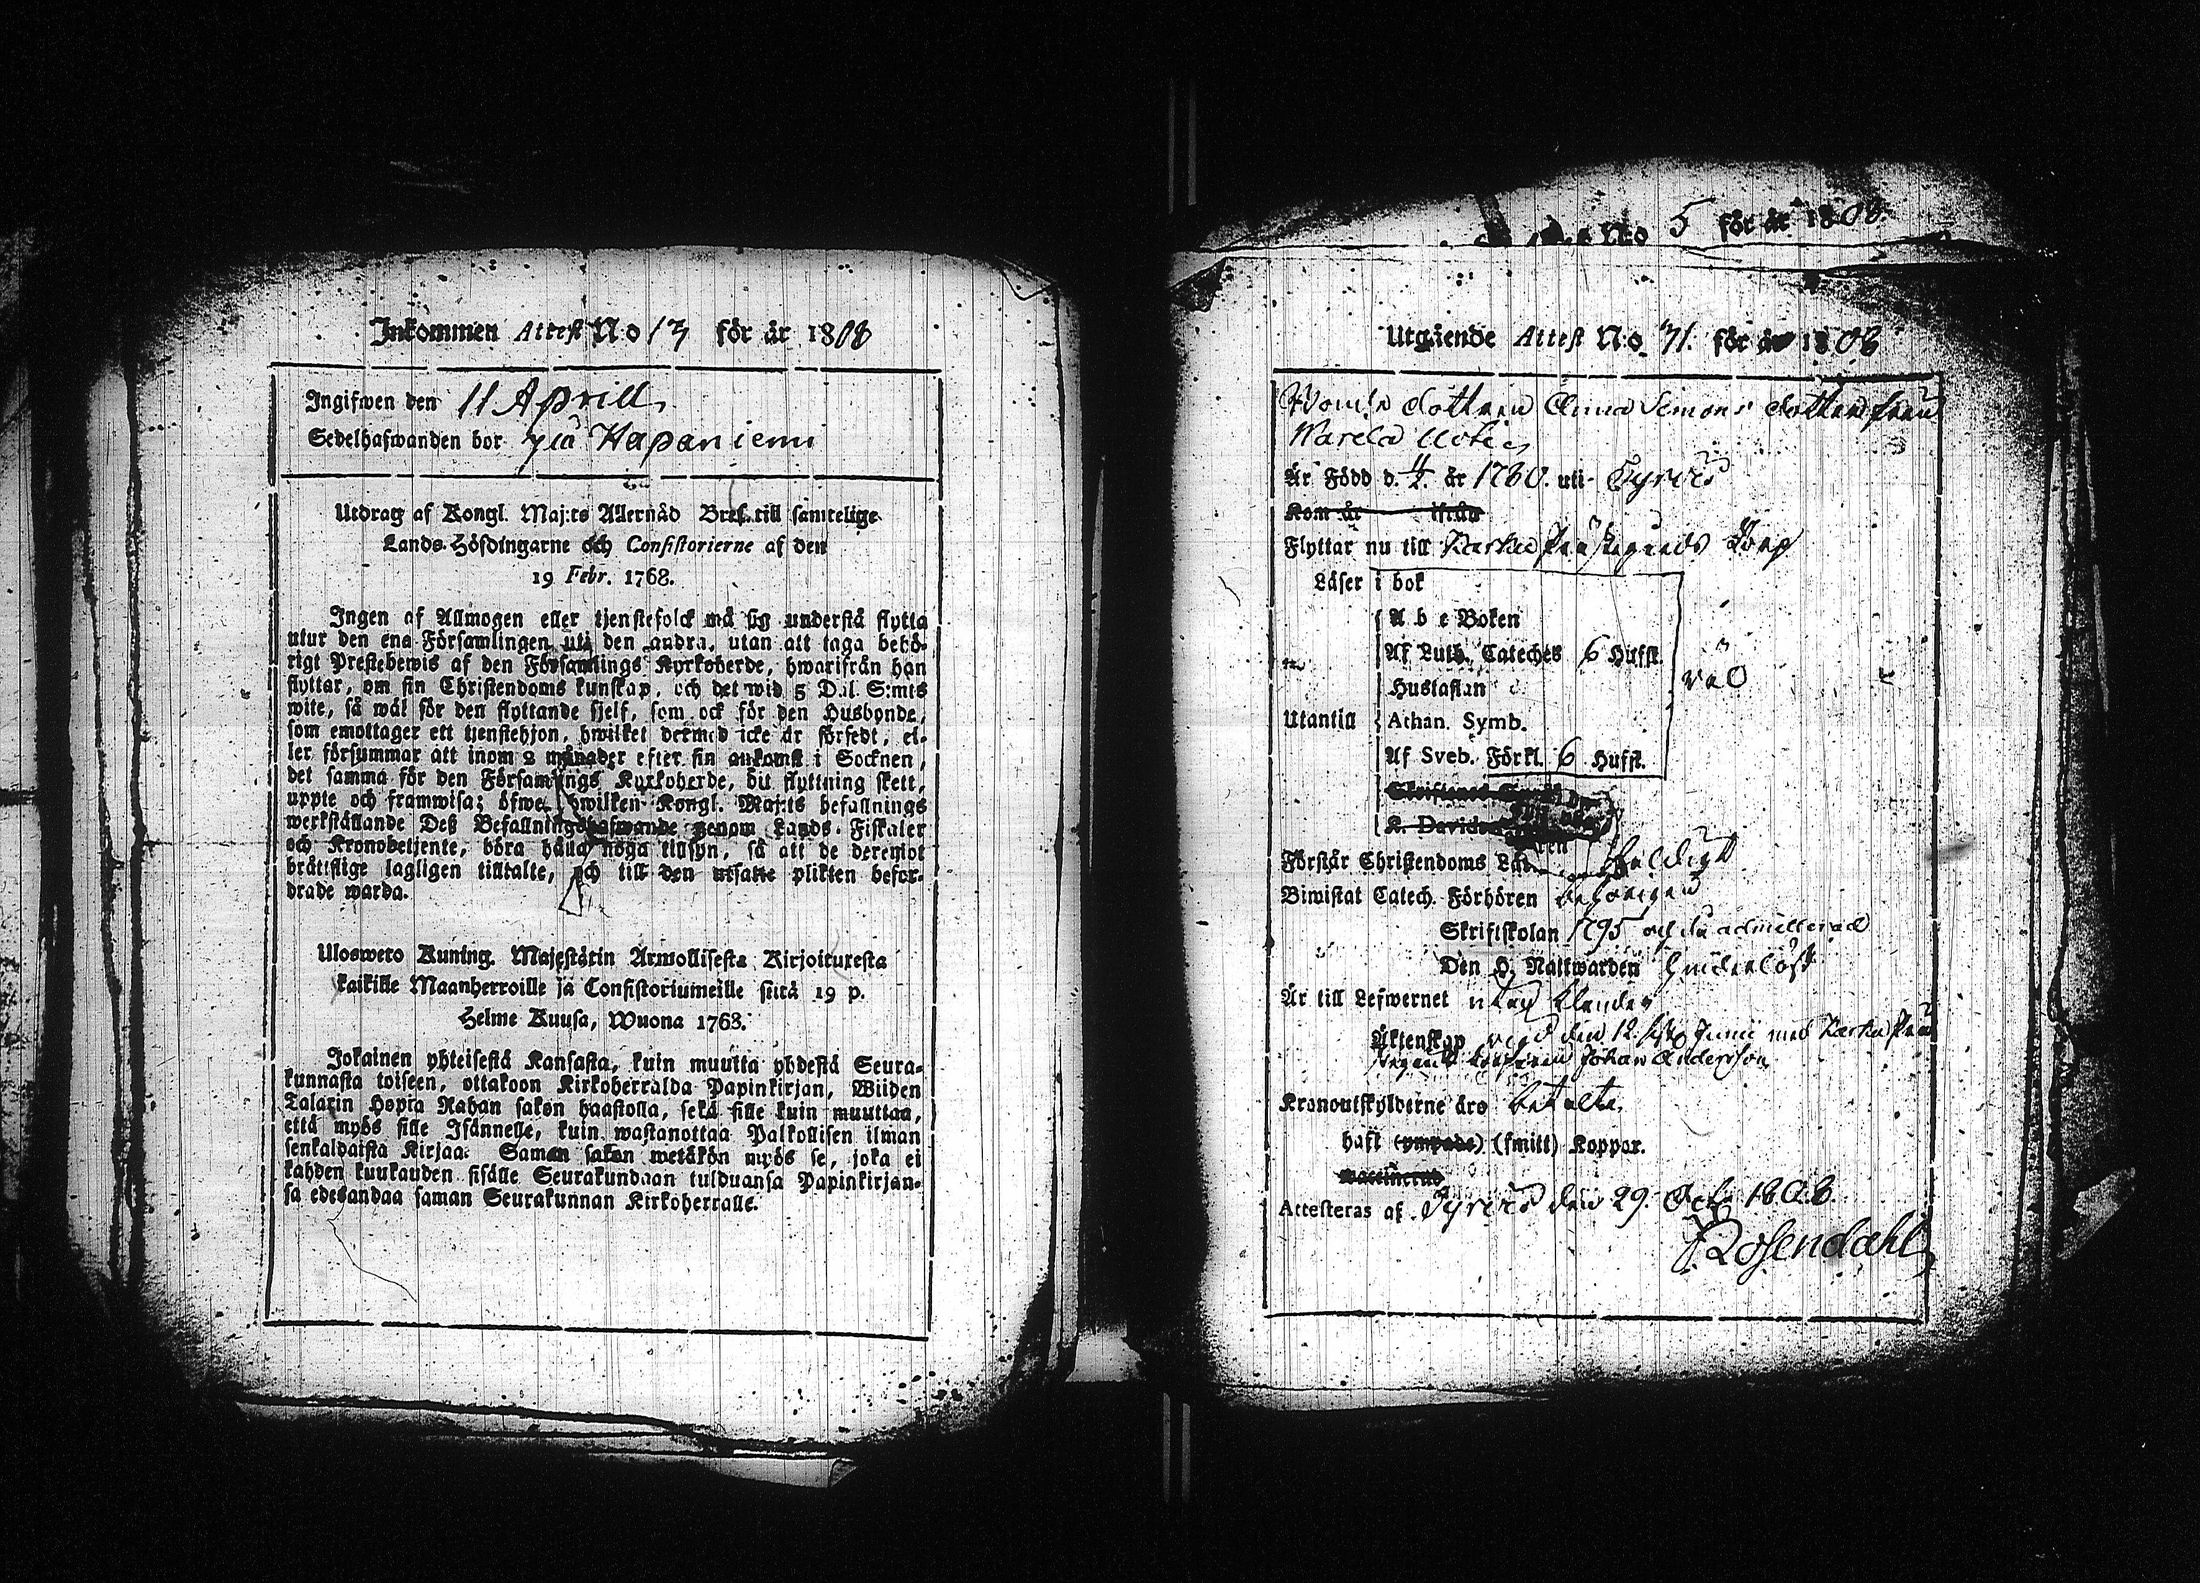 Inkommen Attest No 13 för år 1808
Ingifwen den 11 Aprill
Sedelhafwanden bor på Hapaniemi
Utdrag af Kongl. Maj:ts Allernåd Bref till samtelige
Lands-Höfdingarne och Consistorierne af den
19 Febr. 1768.
Ingen af Allmogen eller tjenstefolck må sig understå flytta
utur den ena Församlingen uti den andra, utan att taga behö-
rigt Prestebewis af den Församlings Kyrkoherde, hwarifrån han
flyttar, om sin Christendoms kunskap, och det wid 5 D.il. S:mts
wite, så wäl för den flyttande sjelf, som ock för den Husbonde,
som emottager ett tjenstehjon, hwilket dermed icke är försedt, el-
ler försummar att inom 2 månader efter sin ankomst i Socknen,
det samma för den Församlings Kyrkoherde, dit flyttning skett,
uppte och framwisa; öfwer hwilken Kongl. Maj:ts befallnings
werkställande Deß Befallningshafwande genom Lands-Fiskaler
och Kronobetjente, böra hålla noga tillsyn, så att de deremot
bråttslige lagligen tilltalte, och till den utsatte plikten befor-
drade warda.
Uloswero Kuning. Majestätin Armollisesta Kirjoituxesta
kaikille Maanherroille ja Consistoriumeille siitä 19 p.
Helme Kuusa, Wuona 1768.
Jokainen yhteisestä Kansasta, kuin muutta yhdestä Seura-
kunnasta toiseen, ottakoon Kirkoherralda Papinkirjan, Wiiden
Talarin Hopia Rahan sakon haastolla, sekä sille kuin muuttaa,
että myös sille Isännelle, kuin wastanottaa Palkollisen ilman
senkaldaista Kirjaa: Saman sakon wetäkön myös se, joka ei
kahden kuukauden sisälle Seurakundaan tulduansa Papinkirjan-
sa edesandaa saman Seurakunnan Kirkoherralle.
No 5 för år 1808
Utgående Attest N:o 71. för år 1808
dottren Anna Simons dotter från
Warela
Är Född d. år 1780. uti Tyrvis
Kom år ifrån
Flyttar nu till Karku Prästegårds Torp
Läser i bok
A b c Boken
Af Luth. Cateches 6 Hufst.
Hustaflan
väl
Utantill
Athan. Symb.
Af Sveb. Förkl. 6 Hufst.
K. Davids
Förstår Christendoms
Biwistat Catech. Förhören behörigen
Skriftskolan 1795 och då admitterad
Den H. Nattwarden
Är till Lefwernet utan klander
Äktenskap vigd den 12 Junii med Karku Prä
Johan Andersson
Kronoutskylderne äro betalte
haft (ympade) (smitt) Koppor.
Attesteras af Tyrvis den 29. Oct. 1808.
Rosendahl